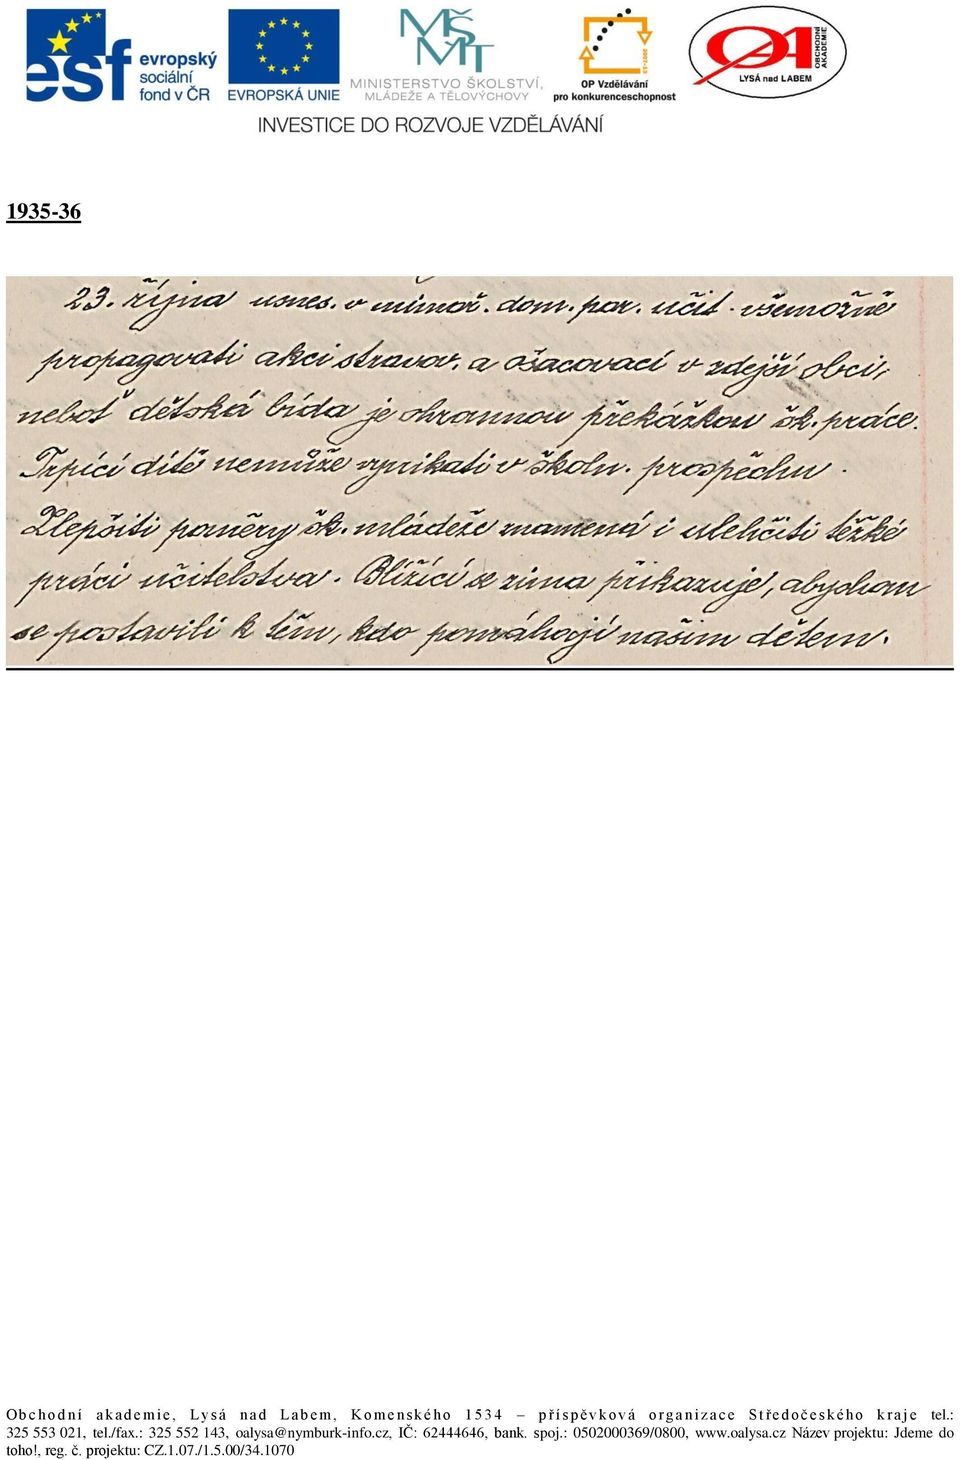 esf evropský
sociální
fond v ČR
EVROPSKÁ UNIE
MŠMT
MINISTERSTVO ŠKOLSTVÍ,
MLÁDEŽE A TĚLOVÝCHOVY
2007-13
OP Vzdělávání
pro konkurenceschopnost
OA
OBCHODNÍ
AKADEMIE
LYSÁ nad LABEM
INVESTICE DO ROZVOJE VZDĚLÁVÁNÍ
1935-36
23. října usnes. v mimoř. dom. por. učit. všemožně
propagovati akci stravov. a ošacovací v zdejší obci,
neboť dětská bída je ohromnou překážkou šk. práce.
Trpící dítě nemůže vynikati v školn. prospěchu.
Zlepšiti poměry šk. mládeže znamená i ulehčiti těžké
práci učitelstva. Blížící se zima přikazuje, abychom
se postavili k těm, kdo pomáhají našim dětem.
Obchodní akademie, Lysá nad Labem, Komenského 1534 – příspěvková organizace Středočeského kraje tel.:
325 553 021, tel./fax.: 325 552 143, oalysa@nymburk-info.cz, IČ: 62444646, bank. spoj.: 0502000369/0800, www.oalysa.cz Název projektu: Jdeme do
toho!, reg. č. projektu: CZ.1.07./1.5.00/34.1070